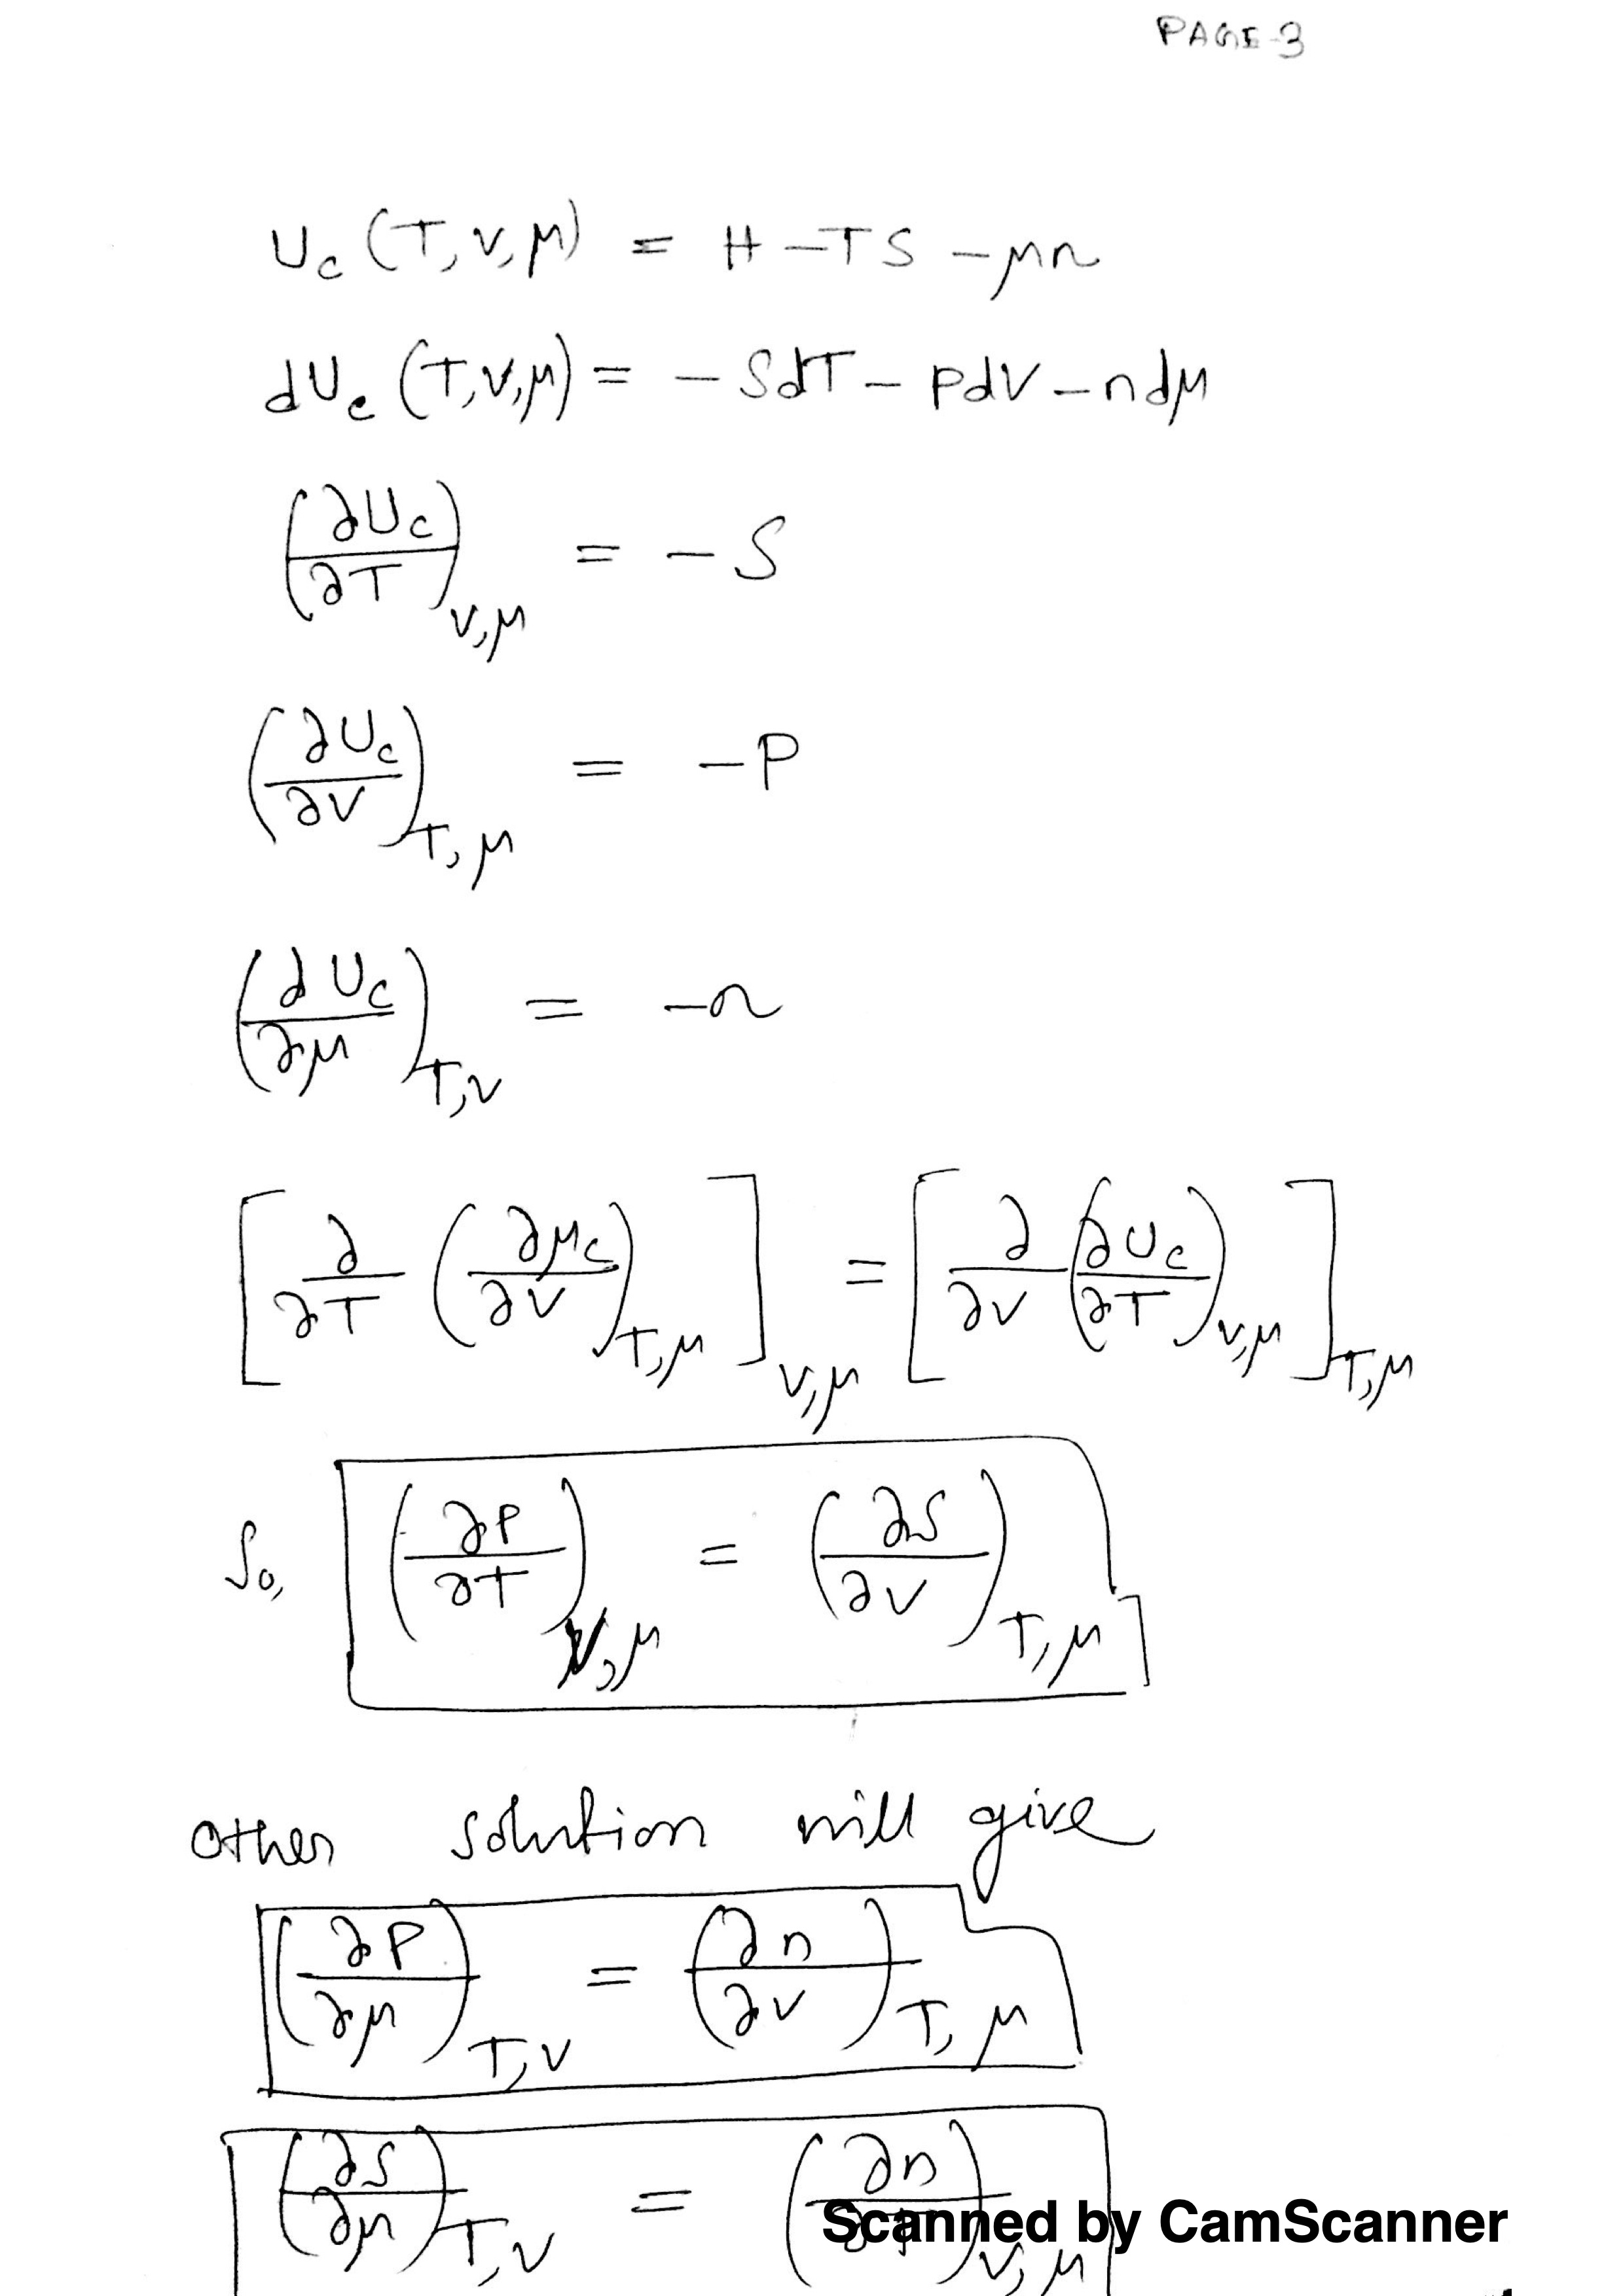 PAGE-3
U_c (T, V, μ) = H - TS - μn
dU_c (T, V, μ) = - SdT - PdV - ndμ
(∂U_c/∂T)_{V,μ} = - S
(∂U_c/∂V)_{T,μ} = - P
(∂U_c/∂μ)_{T,V} = - n
[∂/∂T (∂μ_c/∂V)_{T,μ}]_{V,μ} = [∂/∂V (∂U_c/∂T)_{V,μ}]_{T,μ}
So, (∂P/∂T)_{V,μ} = (∂S/∂V)_{T,μ}
Other solution will give
(∂P/∂μ)_{T,V} = (∂n/∂V)_{T,μ}
(∂S/∂μ)_{T,V} = (∂n/∂T)_{V,μ}
Scanned by CamScanner